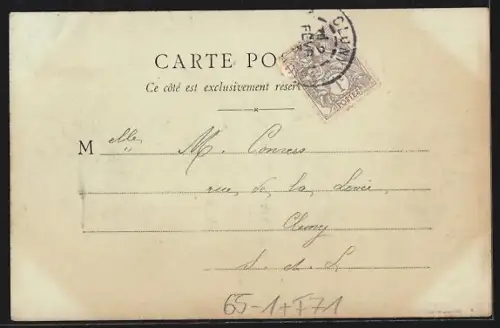 CARTE PO
Ce côté est exclusivement reserv
CLUNY
FEVR
1
POSTES
Mlle M. Conress
rue de la Levée
Cluny
S. et L.
65-1+T71